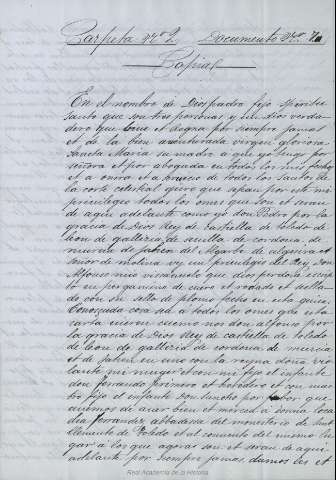 Carpeta nº 2 Documento nº 7
Copias
En el nombre de Dios padre fijo Spiritu
santo que son tres personas y un dios verda
dero que bive et Regna por siempre jamas
et de la bien aventurada virgen gloriosa
sancta Maria su madre a que yo tengo por
señora et por abogada en todos los mis fechos
et a onrra et a servicio de todos los santos de
la corte celestial quiero que sepan por este mi
privilegio todos los omes que son et seran
de aqui adelante como yo don Pedro por la
gracia de Dios Rey de Castiella de toledo de
leon de gallizia de sevilla de cordova de
murcia de jahen del Algarbe de algezira et
señor de molina vy un privilegio del Rey don
Alfonso mio visavuelo que dios perdone escrip
to en pergamino de cuero et rodado et sella
do con su sello de plomo fecho en esta guisa
Conosçuda cosa sea a todos los omes que esta
carta vieren cuemo nos don alfonso por
la gracia de Dios Rey de castiella de toledo
de leon de gallizia de cordova de murcia
et de jahen en uno con la reyna doña vio
lante mi muger et con mio fijo el infante
don fernando primero et heredero et con nues
tro fijo el infante don Sancho por sabor que
avemos de facer bien et merced a donna
dia Ferrandez abbadessa del monesterio de Sant
clemente de Toledo et al convento del mismo lu
gar a los que agora son et seran de aqui
adelante por siempre jamas damos les et
Real Academia de la Historia